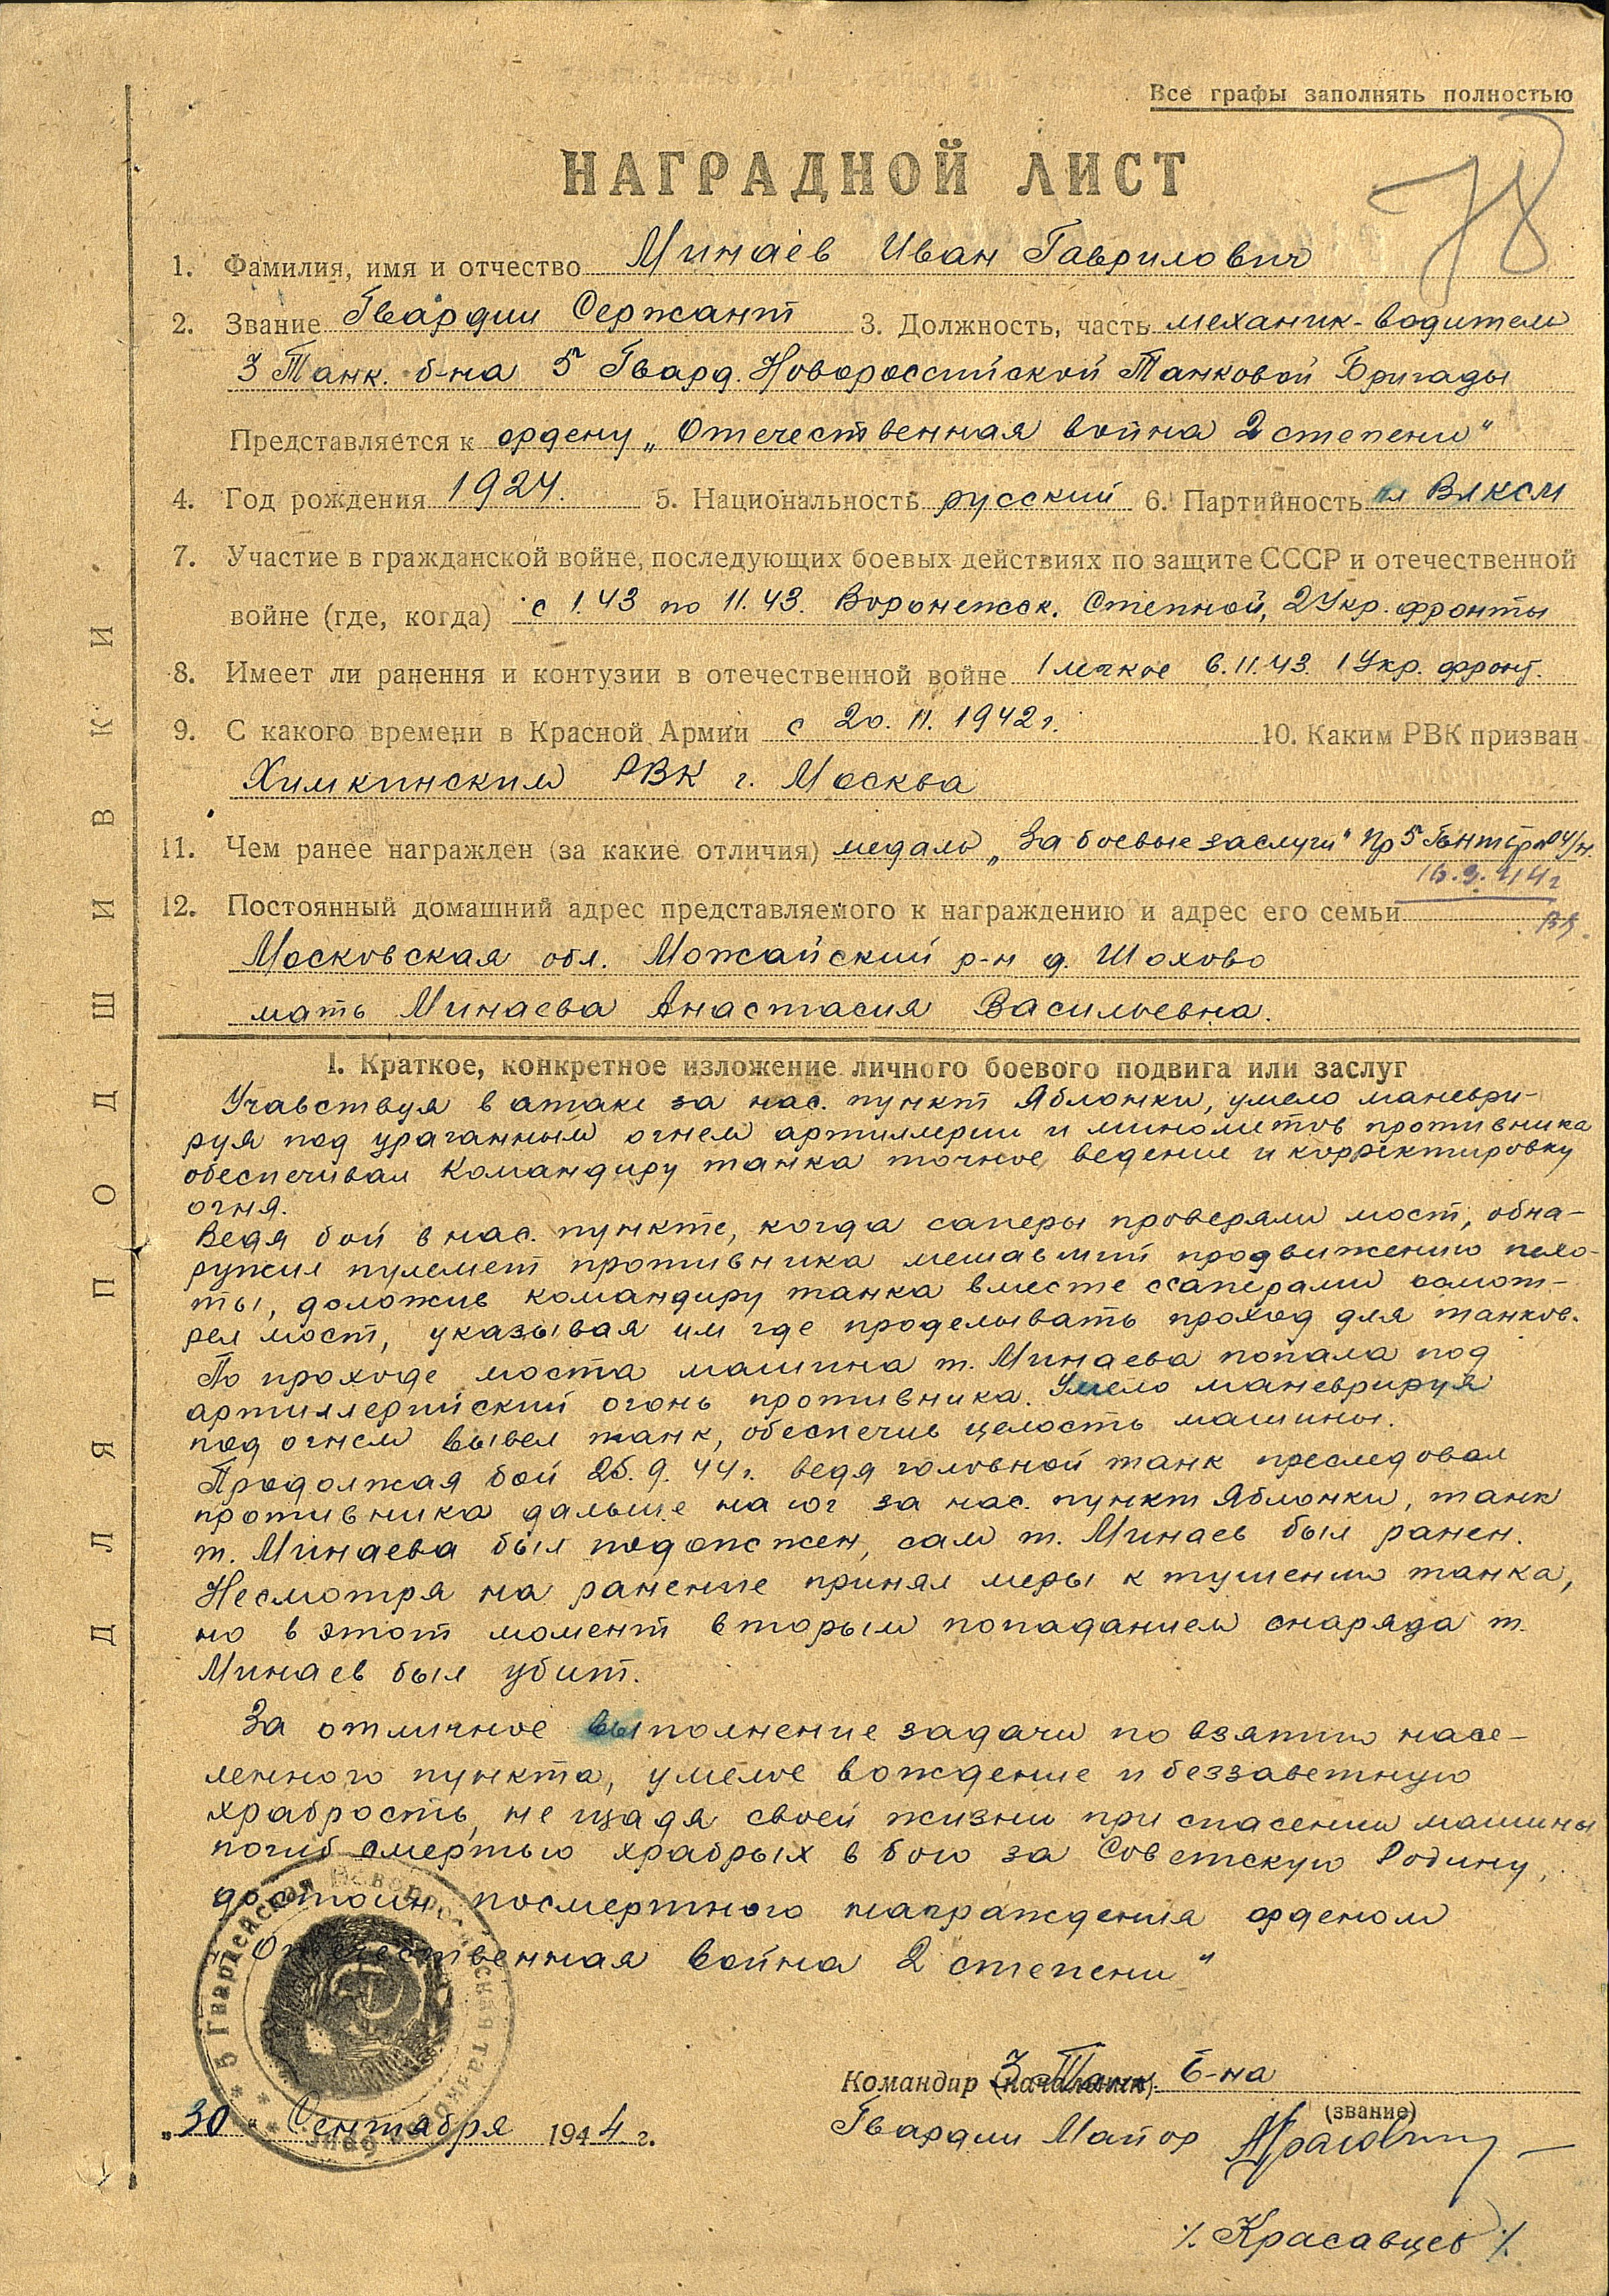 Все графы заполнять полностью
78
НАГРАДНОЙ ЛИСТ
1. Фамилия, имя и отчество Минаев Иван Гаврилович
2. Звание Гвардии Сержант 3. Должность, часть механик-водитель
3 Танк. б-на 5 Гвард. Новороссийской Танковой Бригады
Представляется к ордену „Отечественная война 2 степени"
4. Год рождения 1924. 5. Национальность русский 6. Партийность чл ВЛКСМ
7. Участие в гражданской войне, последующих боевых действиях по защите СССР и отечественной
войне (где, когда) с 1.43 по 11.43. Воронежск. Степной, 2 Укр. фронты
8. Имеет ли ранения и контузии в отечественной войне 1 легкое 6.11.43. 1 Укр. фронт.
9. С какого времени в Красной Армии с 20.11.1942 г. 10. Каким РВК призван
Химкинским РВК г. Москва
11. Чем ранее награжден (за какие отличия) медаль „За боевые заслуги" Пр 5 Гв нтбр №04/н.
16.9.44г
12. Постоянный домашний адрес представляемого к награждению и адрес его семьи
Московская обл. Можайский р-н д. Шохово
мать Минаева Анастасия Васильевна.
I. Краткое, конкретное изложение личного боевого подвига или заслуг
Учавствуя в атаке за нас. пункт Яблонки, умело маневри-
руя под ураганным огнем артиллерии и минометов противника
обеспечивал командиру танка точное ведение и корректировку
огня.
Ведя бой в нас. пункте, когда саперы проверяли мост, обна-
ружил пулемет противника мешавший продвижению пехо-
ты, доложив командиру танка вместе с саперами осмот-
рел мост, указывая им где проделывать проход для танков.
По проходе моста машина т. Минаева попала под
артиллерийский огонь противника. Умело маневрируя
под огнем вывел танк, обеспечив целость машины.
Продолжая бой 25.9.44г. ведя головной танк преследовал
противника дальше на юг за нас. пункт Яблонки, танк
т. Минаева был подожжен, сам т. Минаев был ранен.
Несмотря на ранение принял меры к тушению танка,
но в этот момент вторым попаданием снаряда т.
Минаев был убит.
За отличное выполнение задачи по взятию насе-
ленного пункта, умелое вождение и беззаветную
храбрость, не щадя своей жизни при спасении машины
погиб смертью храбрых в бою за Советскую Родину,
достоин посмертного награждения орденом
„Отечественная война 2 степени"
Командир (начальник) 3 Танк. б-на
(звание)
„30" Сентября 1944 г.
Гвардии Майор
/. Красавцев /.
ДЛЯ ПОДШИВКИ
5 Гвардейская Новороссийская танковая бриг